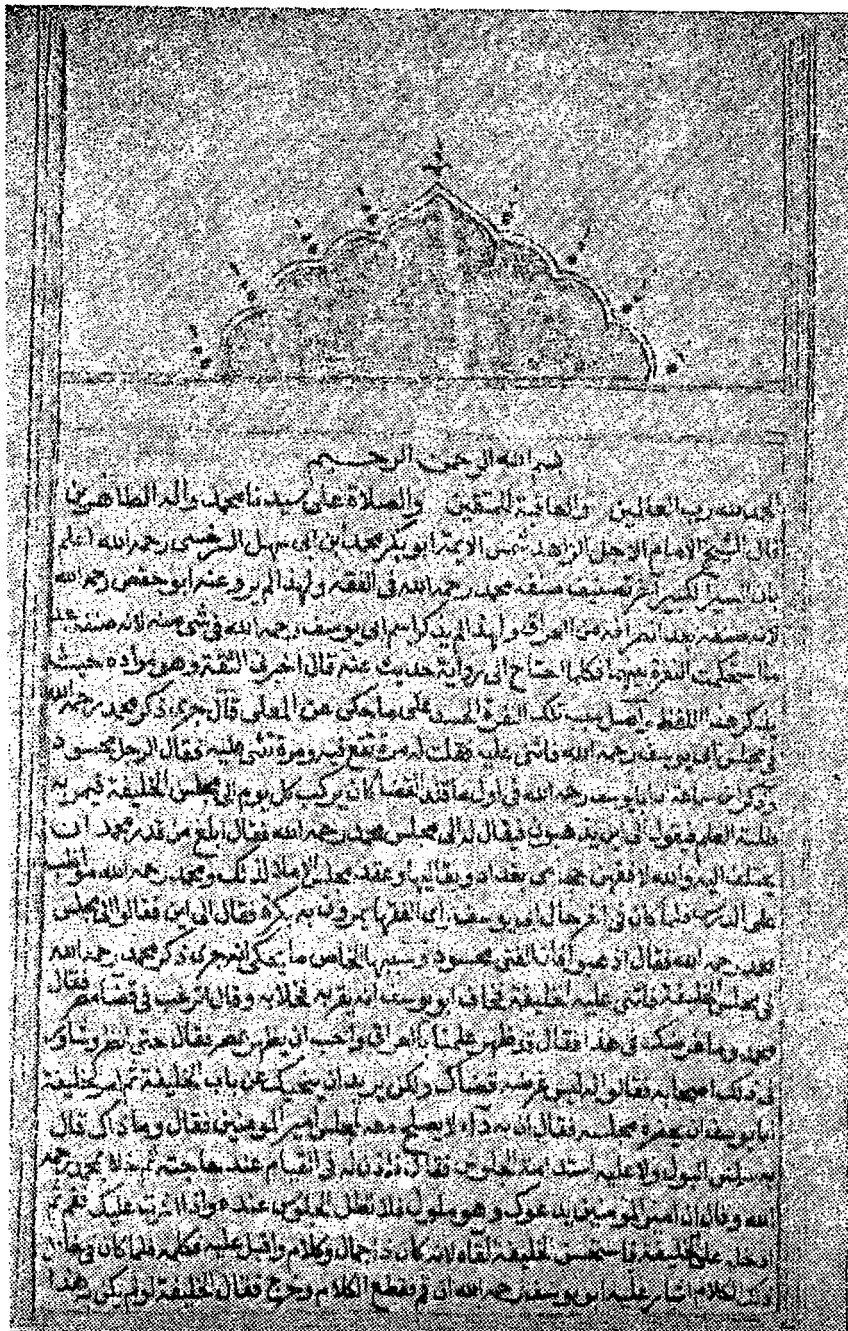 بسم الله الرحمن الرحيم
الحمد لله رب العالمين والعاقبة للمتقين والصلاة على سيدنا محمد وآله الطاهرين
قال الشيخ الامام الاجل الزاهد شمس الايمة ابو بكر محمد بن ابي سهل السرخسي رحمه الله اعلم
بان السير الكبير آخر تصنيف صنفه محمد رحمه الله في الفقه ولهذا لم يروه عنه ابو حفص رحمه الله
لانه صنفه بعد انصرافه من العراق ولهذا لم يذكر اسم ابي يوسف رحمه الله في شئ منه لانه صنفه بعد
ما استحكمت النفرة بينهما فكلما احتاج الى رواية حديث عنه قال اخبرني الثقة وهو مراده حيث
يذكر هذا اللفظ واصل سبب تلك النفرة الحسد على ما حكى عن المعلى قال جرى ذكر محمد رحمه الله
في مجلس ابي يوسف رحمه الله فاثنى عليه فقلت له مرة تقع فيه ومرة تثنى عليه فقال الرجل محسود
وذكر ابن سماعة ان ابا يوسف رحمه الله في اول ما قلد القضا كان يركب كل يوم الى مجلس الخليفة فيمر به
طلبة العلم فيقول الى اين يذهبون فيقال له الى مجلس محمد رحمه الله فقال ابلغ من قدر محمد ان
يختلف اليه والله لافقهن حجامي بغداد وبقاليها وعقد مجلس الاملا لذلك ومحمد رحمه الله مواظب
على الدرس فلما كان في آخر حال ابو يوسف راى الفقها يمرون به بكرة فقال الى اين فقالوا الى مجلس
محمد رحمه الله فقال اذهبوا فان الفتى محسود وسببها الخاص ما يحكى انه جرى ذكر محمد رحمه الله
في مجلس الخليفة فاثنى عليه الخليفة فخاف ابو يوسف انه يقربه فخلا به وقال اترغب في قضا مصر فقال
محمد وما غرضك في هذا فقال قد ظهر علمنا بالعراق واحب ان يظهر بمصر فقال حتى انظر وشاور
في ذلك اصحابه فقالوا له ليس غرضه قضاك ولكن يريد ان ينحيك عن باب الخليفة ثم امر الخليفة
ابا يوسف ان يحضره مجلسه فقال ان به داء لا يصلح معه لمجلس امير المومنين فقال وما ذاك قال
به سلس البول ولا عليه استدامة الجلوس فقال فاذن له في القيام عند حاجته ثم خلا بمحمد رحمه
الله وقال ان امير المومنين يدعوك وهو ملول فلا تطل الجلوس عنده واذا اشرت عليك فقم ثم
ادخله على الخليفة فاستحسن الخليفة لقاه لانه كان ذا جمال وكلام واقبل عليه فكلمه فلما كان في خلال
ذلك الكلام اشار عليه ابو يوسف رحمه الله ان قم فقطع الكلام وخرج فقال الخليفة لو لم يكن به هذا